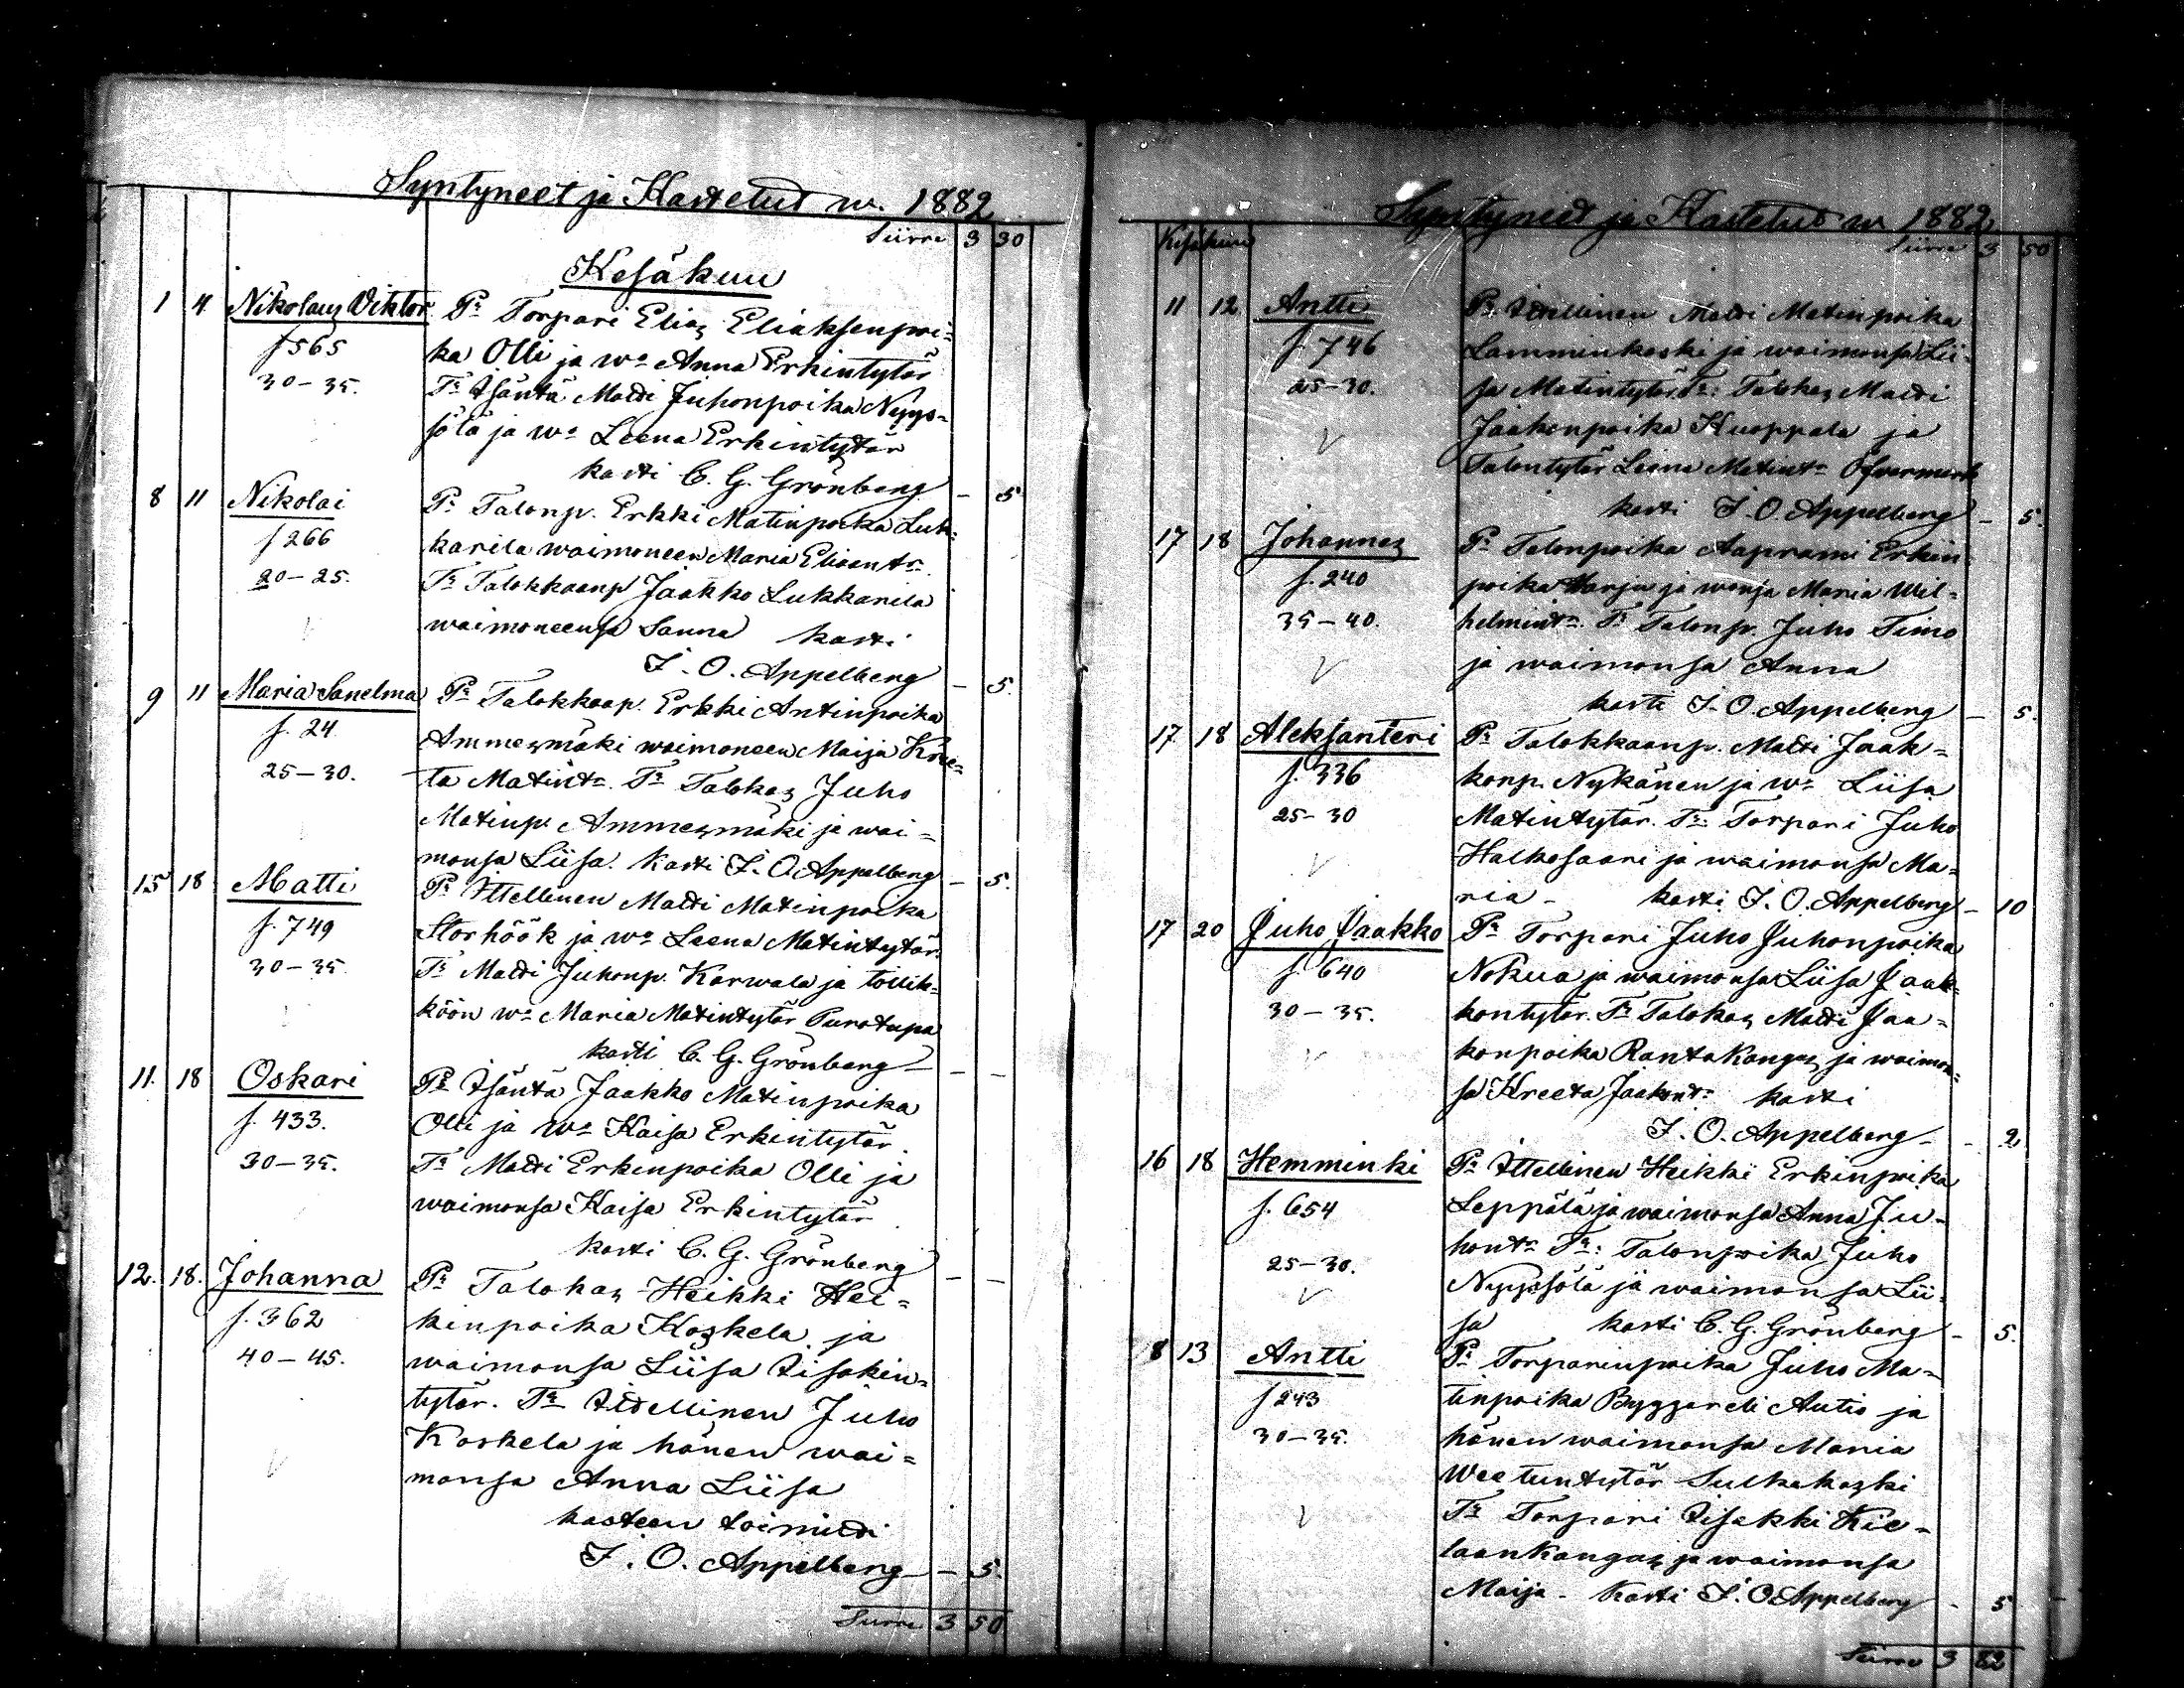 Syntyneet ja Kastetud w. 1882
Siirre 3 30
Kesäkuu
1 4 Nikolaus Viktor Pr Torpari Elias Eliaksenpoi-
f 565 ka Olli ja wo Anna Erkintytär
30-35. Tr Isäntä Matti Juhonpoika Nyys-
sölä ja wo Leena Erkintytär
kasti C. G. Grönberg - 5
8 11 Nikolai Pr Talonp. Erkki Matinpoika Luk-
f 266 karila waimoneen Maria Eliant:r
20-25. Tr Talokkaanp Jaakko Lukkarila
waimoneensa Sanna kasti
F. O. Appelberg - 5.
9 11 Maria Sanelma Pr Talokkaap. Erkki Antinpoika
f. 24. Ammesmäki waimoneen Maija Kree-
25-30. ta Matint:r Tr Talokas Juho
Matinp. Ammesmäki ja wai-
monsa Liisa. Kasti F. O. Appelberg - 5.
15 18 Matti Pr Ittellinen Matti Matinpoika
f. 749 Storhöök ja wo Leena Matintytär.
30-35. Tr Matti Juhonp. Karwala ja
köön wo Maria Matintytär Purotupa
kasti C. G. Grönberg - -
11. 18 Oskari Pr Isäntä Jaakko Matinpoika
f. 433. Olli ja wo Kaisa Erkintytär.
30-35. Tr Matti Erkinpoika Olli ja
waimonsa Kaisa Erkintytär
kasti C. G. Grönberg - -
12. 18. Johanna Pr Talokas Heikki Hei-
f. 362 kinpoika Koskela ja
40-45. waimonsa Liisa Iisakin-
tytär. Tr Itellinen Juho
Koskela ja hänen wai-
monsa Anna Liisa
kasteen toimitti
F. O. Appelberg - 5.
Siirre 3 50
Syntyneet ja Kastetud w 1882
Kesäkuu Siirre 3 50
11 12 Antti Pr Itellinen Matti Matinpoika
f. 746 Lamminkoski ja waimonsa Lii-
25-30. sa Matintytär Tr: Talokas Matti
Jaakonpoika Kuoppala ja
Talontytär Leena Matint:r Öfvermark
kasti F. O. Appelberg - 5.
17 18 Johannes Pr Talonpoika Aaprami Erkin-
f. 240 poika Harju ja wonsa Maria Wil-
35-40. helmint:r Tr Talonp. Juho Timo
ja waimonsa Anna
kasti F. O. Appelberg - 5.
17 18 Aleksanteri Pr Talokkaanp. Matti Jaak-
f. 336 konp. Nykänen ja wo Liisa
25-30 Matintytär. Tr: Torpari Juho
Halkosaari ja waimonsa Ma-
ria - kasti F. O. Appelberg - 10
17 20 Juho Jaakko Pr Torpari Juho Juhonpoika
f. 640 Nokua ja waimonsa Liisa Jaak-
30-35. kontytär. Tr Talokas Matti Jaa-
konpoika Rantakangas ja waimon-
sa Kreeta Jaakont:r kasti
F. O. Appelberg - - 2
16 18 Hemminki Pr Ittellinen Heikki Erkinpoika
f. 654 Leppälä ja waimonsa Anna Ju-
hont:r Tr: Talonpoika Juho
25-30. Nyyssölä ja waimonsa Lii-
sa kasti C. G. Grönberg - 5.
8 13 Antti Pr Torparinpoika Juho Ma-
f 243 tinpoika Byggar eli Autio ja
30-35. hänen waimonsa Maria
Weetuntytär Sulkakoski
Tr Torpari Iisakki Kie-
laankangas ja waimonsa
Maija - Kasti F. O. Appelberg - 5
Siirre 3 82